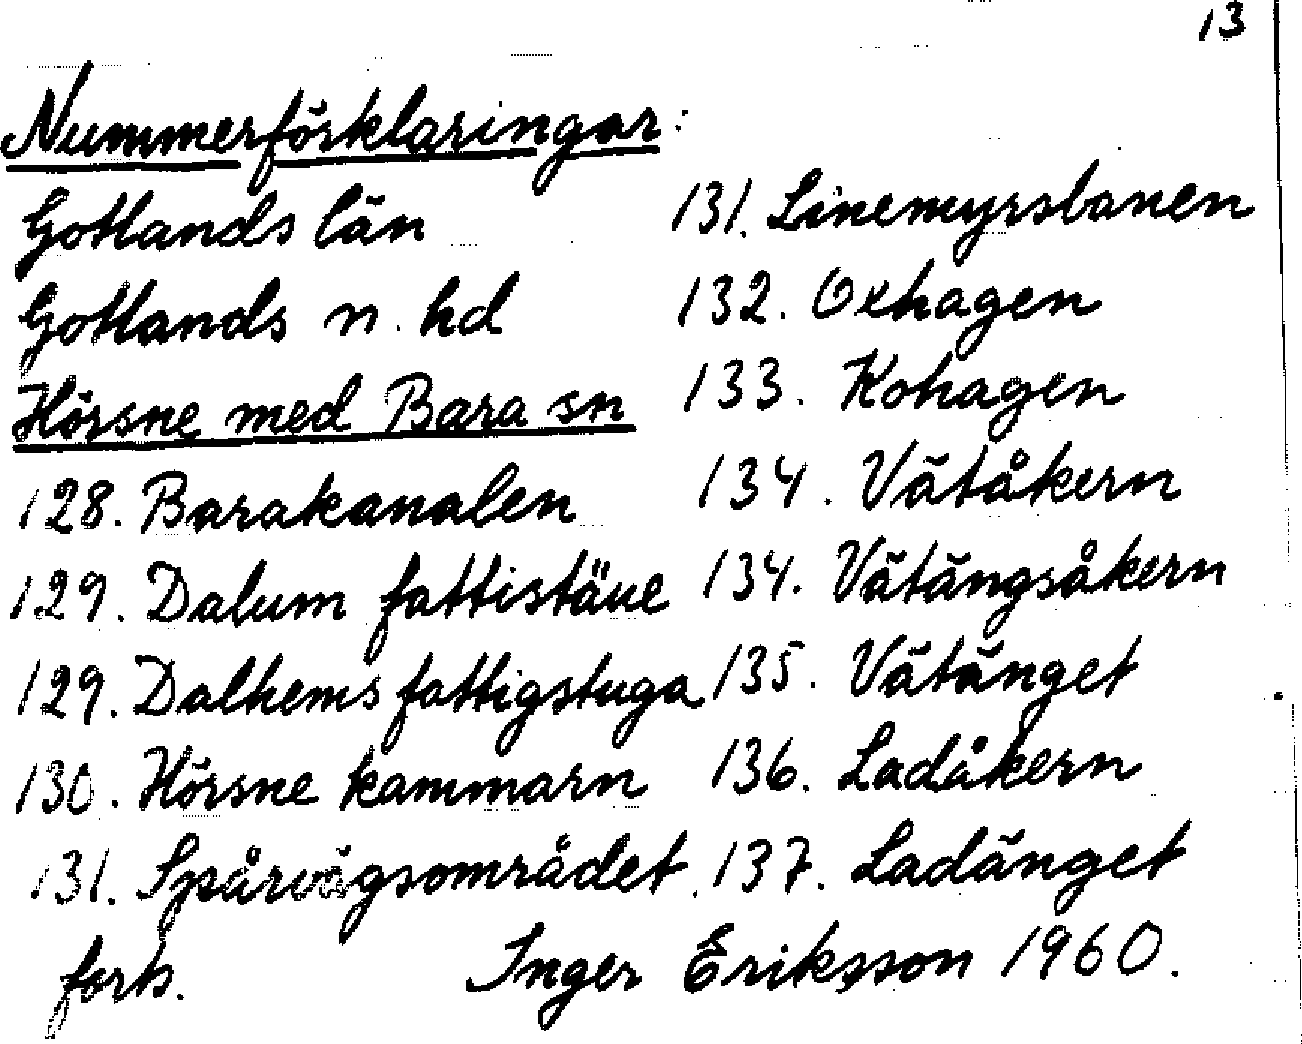 13
Nummerförklaringar:
Gotlands län
Gotlands n. hd
Hörsne med Bara sn
128. Barakanalen
129. Dalum fattistäue
129. Dalhems fattigstuga
130. Hörsne kammarn
131. Spårvägsområdet
forts.
131. Linemyrsbanen
132. Oxhagen
133. Kohagen
134. Vätåkern
134. Vätängsåkern
135. Vätänget
136. Ladåkern
137. Ladänget
Inger Eriksson 1960.